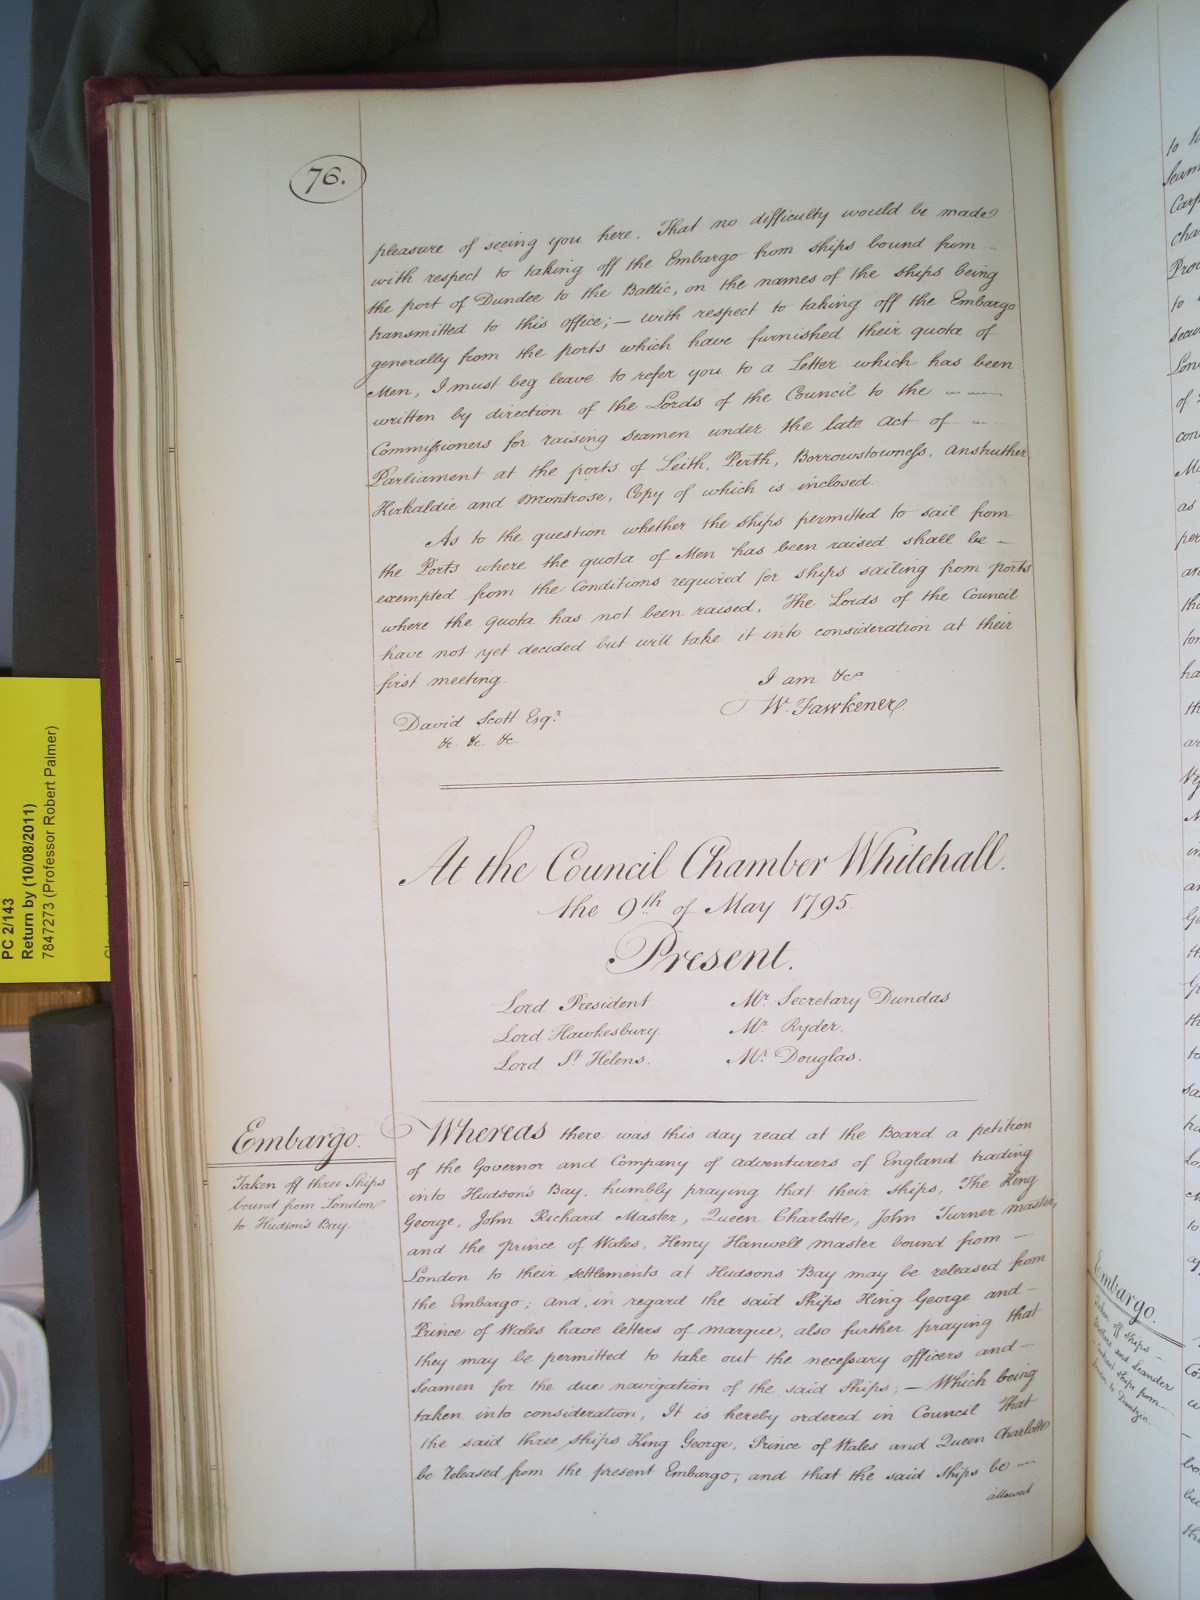 76.
pleasure of seeing you here. That no difficulty would be made
with respect to taking off the Embargo from ships bound from
the port of Dundee to the Baltic, on the names of the ships being
transmitted to this office; — with respect to taking off the Embargo
generally from the ports which have furnished their quota of
Men, I must beg leave to refer you to a Letter which has been
written by direction of the Lords of the Council to the
Commissioners for raising seamen under the late Act of
Parliament at the ports of Leith, Perth, Borrowstowness, Anstruther
Kirkaldie and Montrose, Copy of which is inclosed.
As to the question whether the ships permitted to sail from
the Ports where the quota of Men has been raised shall be —
exempted from the Conditions required for ships sailing from ports
where the quota has not been raised, The Lords of the Council
have not yet decided but will take it into consideration at their
first meeting.
I am &ca
W. Fawkener.
David Scott Esqr.
&c &c &c
At the Council Chamber Whitehall.
the 9th of May 1795.
Present.
Lord President Mr. Secretary Dundas
Lord Hawkesbury. Mr. Ryder.
Lord St Helens. Mr. Douglas.
Embargo.
Taken off three Ships
bound from London
to Hudson's Bay.
Whereas there was this day read at the Board a petition
of the Governor and Company of adventurers of England trading
into Hudson's Bay, humbly praying that their Ships, The King
George, John Richard Master, Queen Charlotte, John Turner master,
and the Prince of Wales, Henry Hanwell master bound from —
London to their settlements at Hudsons Bay may be released from
the Embargo; and, in regard the said Ships King George and —
Prince of Wales have letters of marque, also further praying that
they may be permitted to take out the necessary officers and —
Seamen for the due navigation of the said Ships; — Which being
taken into consideration, It is hereby ordered in Council That
the said three ships King George, Prince of Wales and Queen Charlotte
be released from the present Embargo; and that the said Ships be —
allowed
PC 2/143
Return by (10/08/2011)
7847273 (Professor Robert Palmer)
Embargo.
Taken off ships —
and Leander
ships from
to Dantzic.